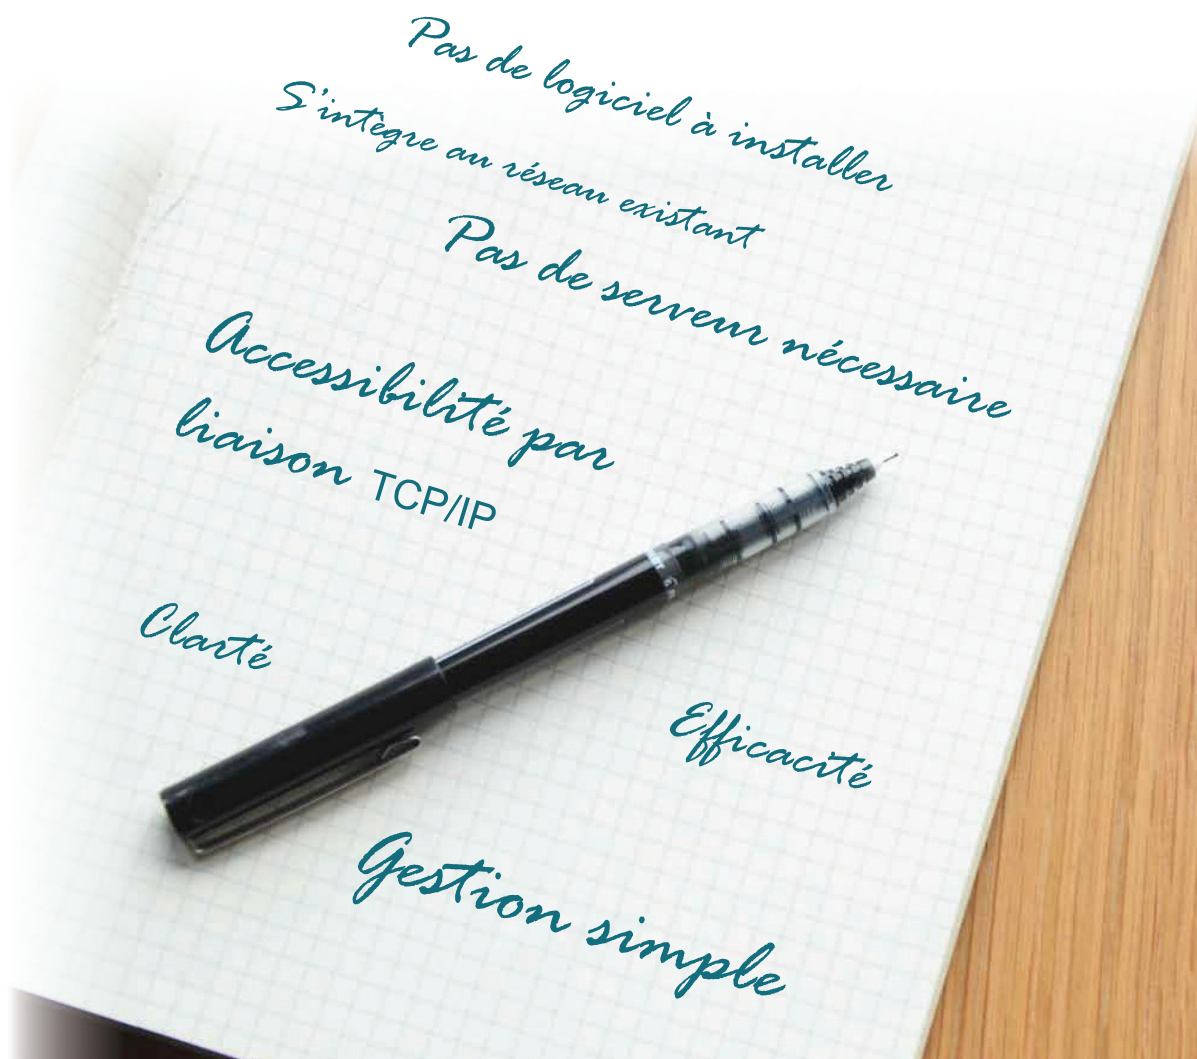 Pas de logiciel à installer
S'intègre au réseau existant
Pas de serveur nécessaire
Accessibilité par
liaison TCP/IP
Clarté
Efficacité
Gestion simple